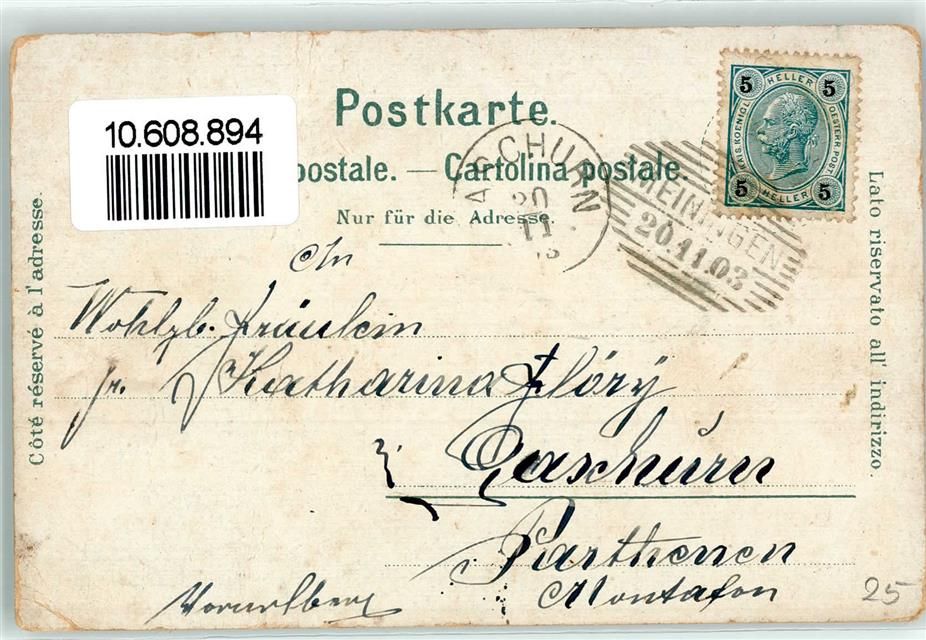 Postkarte.
10.608.894
postale. — Cartolina postale.
Nur für die Adresse.
5 HELLER 5
KAIS. KOENIGL. OESTERR. POST
5 HELLER 5
MEININGEN
20.11.03
SCHURN
20
11
An
Wohlgb. Fräulein
Katharina Flöry
Gaschurn
Parthenen
Montafon
Vorarlberg
25
Côté réservé à l'adresse.
Lato riservato all' indirizzo.